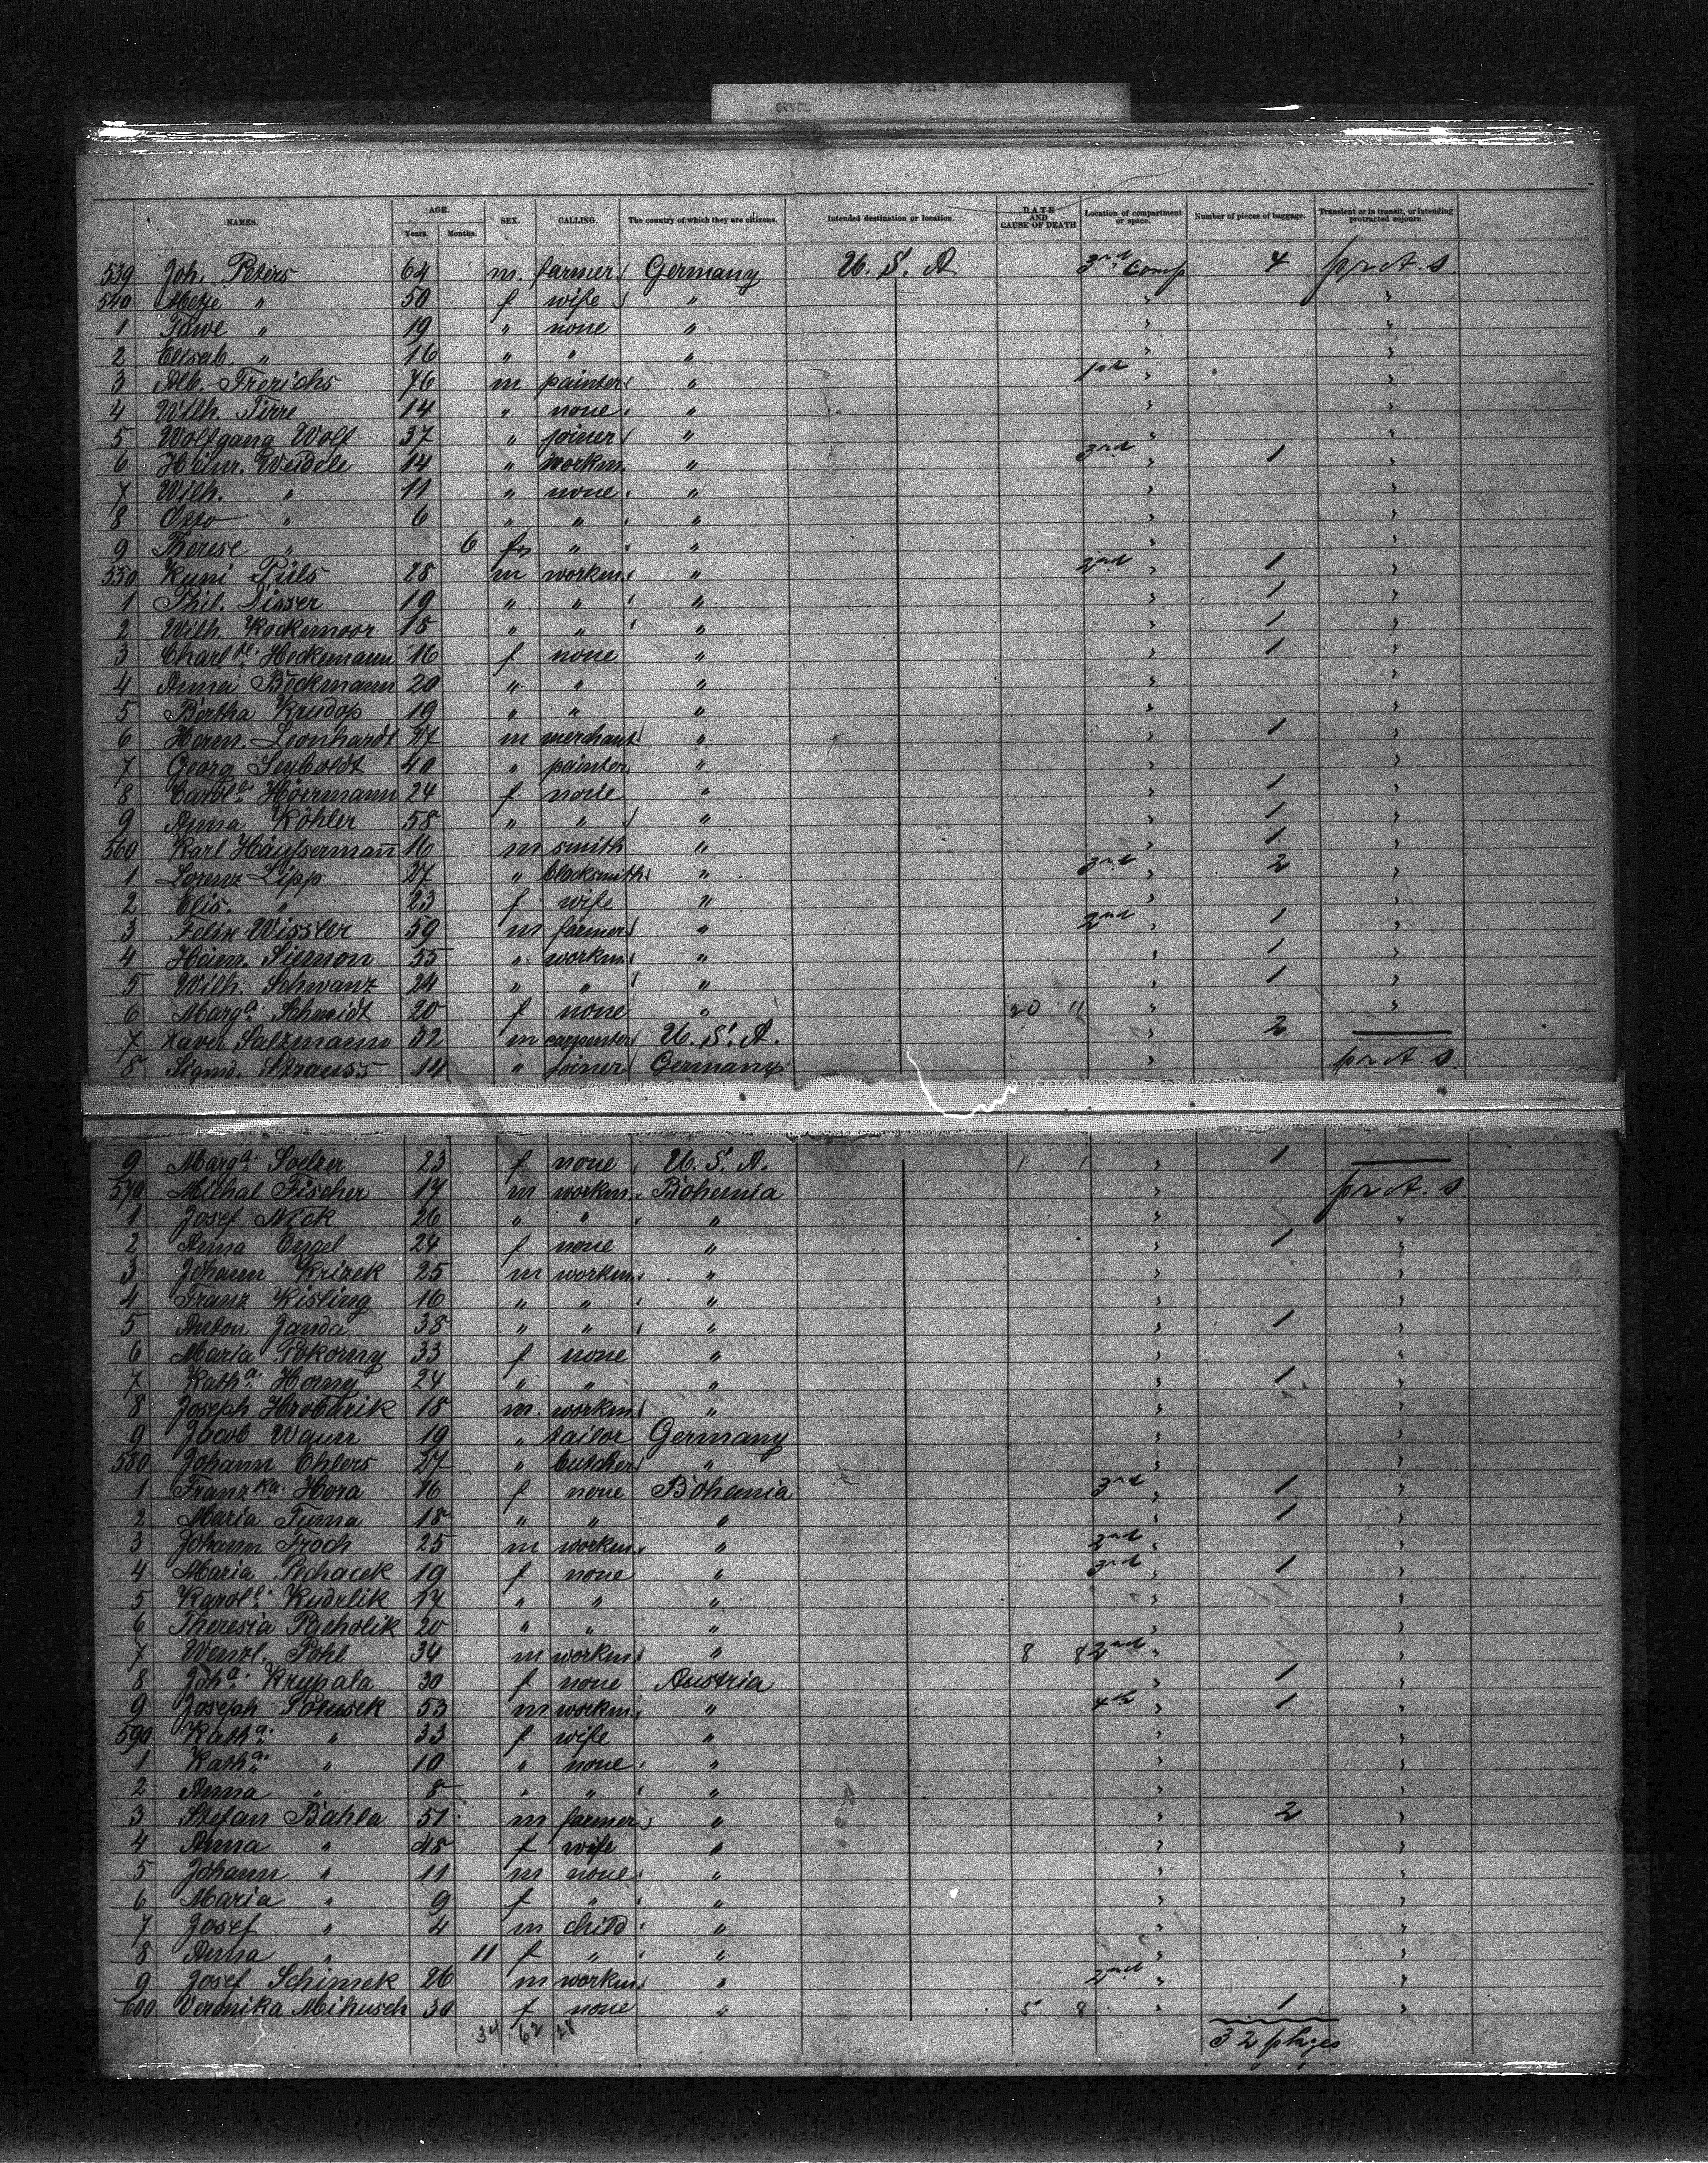 NAMES. AGE. SEX. CALLING. The country of which they are citizens. Intended destination or location. DATE AND CAUSE OF DEATH Location of compartment or space. Number of pieces of baggage. Transient or in transit, or intending protracted sojourn.
Years. Months.
539 Joh. Peters 64 m. farmer Germany U. S. A 3rd Comp 4 pr A. s.
540 Metje " 50 f wife " " "
1 " 19 " none " " "
2 Elisab. " 16 " " " " "
3 Alb. Frerichs 76 m painter " 1st " "
4 Wilh. Tirre 14 " none " " "
5 Wolfgang Wolf 37 " joiner " " "
6 Heinr. Weidele 14 " workm. " 3rd " 1 "
7 Wilh. " 11 " none " " "
8 Otto " 6 " " " " "
9 Therese " 6 f " " " "
550 Kuni Püls 28 m workm. " 2nd " 1 "
1 Phil. 19 " " " " 1 "
2 Wilh. Kockemoor 18 " " " " 1 "
3 Charl.te Heckemann 16 f none " " 1 "
4 Anna Böckmann 20 " " " " "
5 Bertha Krudop 19 " " " " "
6 Herm. Leonhardt 27 m merchant " " 1 "
7 Georg Seyboldt 40 " painter " " "
8 Hörrmann 24 f none " " 1 "
9 Anna Köhler 58 " " " " 1 "
560 Karl Häufsermañ 16 m smith " " 1 "
1 Lorenz Lipp 27 " blacksmith " 3rd " 2 "
2 Elis. " 23 f wife " " "
3 Felix Wissler 59 m farmer " 2nd " 1 "
4 Heinr. Siemon 55 " workm. " " 1 "
5 Wilh. Schwanz 24 " " " " 1 "
6 Marg.a Schmidt 20 f none " 20 11 " "
7 Xaver Salzmann 32 m carpenter U. S. A. " 2 —
8 Sigmd. Strauss 14 " joiner Germany " pr A. s.
9 Marg.a Soelzer 23 f none U. S. A. 1 1 " 1 —
570 Michal Fischer 17 m workm. Bohemia " pr A. s.
1 Josef Nick 26 " " " " "
2 Anna Engel 24 f none " " 1 "
3 Johann Krizek 25 m workm. " " "
4 Franz Kisling 16 " " " " "
5 Anton Janda 38 " " " " 1 "
6 Maria Pokorny 33 f none " " "
7 Kath.a Horny 24 " " " " 1 "
8 Joseph 18 m. workm. " " "
9 Jacob 19 " tailor Germany " "
580 Johann Ehlers 27 " butcher " " "
1 Franz.ka Hora 16 f none Bohemia 3rd " 1 "
2 Maria Tuma 18 " " " " 1 "
3 Johann 25 m workm. " 2nd " "
4 Maria Pechacek 19 f none " 3rd " 1 "
5 Kudrlik 17 " " " " "
6 Theresia Pacholik 20 " " " " "
7 Wenzl. Pohl 34 m workm. " 8 8 2nd " "
8 Joh.a Krupala 30 f none Austria " 1 "
9 Joseph 53 m workm. " 4th " 1 "
590 Kath.a " 33 f wife " " "
1 Kath.a " 10 " none " " "
2 Anna " 8 " " " " "
3 Stefan Bahla 51 m farmer " " 2 "
4 Anna " 48 f wife " " "
5 Johann " 11 m none " " "
6 Maria " 9 f " " " "
7 Josef " 4 m child " " "
8 Anna " 11 f " " " "
9 Josef Schimek 26 m workm. " 2nd " "
600 Veronika Mihusch 30 f none " 5 8 " 1 "
34 62 28 32 pkges